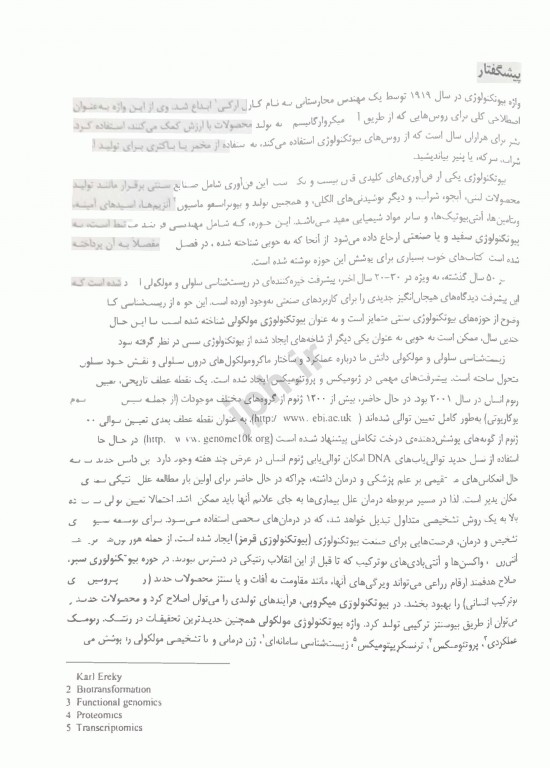 پیشگفتار
واژه بیوتکنولوژی در سال ۱۹۱۹ توسط یک مهندس مجارستانی به نام کارل ارکی ابداع شد. وی از این واژه به‌عنوان
اصطلاحی کلی برای روش‌هایی که از طریق میکروارگانیسم به تولید محصولات با ارزش کمک می‌کنند، استفاده کرد.
بشر برای هزاران سال است که از روش‌های بیوتکنولوژی استفاده می‌کند، به استفاده از مخمر یا باکتری برای تولید
شراب، سرکه، یا پنیر بیاندیشید.
بیوتکنولوژی یکی از فن‌آوری‌های کلیدی قرن بیست و یک است این فن‌آوری شامل صنایع سنتی برقرار مانند تولید
محصولات لبنی، آبجو، شراب، و دیگر نوشیدنی‌های الکلی، و همچنین تولید و بیوترانسفورماسیون آنزیم‌ها، اسیدهای آمینه،
ویتامین‌ها، آنتی‌بیوتیک‌ها، و سایر مواد شیمیایی مفید می‌باشد. این حوزه، که شامل مهندسی فرآیند مرتبط است، به
بیوتکنولوژی سفید و یا صنعتی ارجاع داده می‌شود از آنجا که به خوبی شناخته شده، در فصل مفصلاً به آن پرداخته
شده است کتاب‌های خوب بسیاری برای پوشش این حوزه نوشته شده است.
در ۵۰ سال گذشته، به ویژه در ۳۰-۲۰ سال اخیر، پیشرفت خیره‌کننده‌ای در زیست‌شناسی سلولی و مولکولی شده است که
این پیشرفت دیدگاه‌های هیجان‌انگیز جدیدی را برای کاربردهای صنعتی به‌وجود آورده است. این حوزه از زیست‌شناسی کا
وضوح از حوزه‌های بیوتکنولوژی سنتی متمایز است و به عنوان بیوتکنولوژی مولکولی شناخته شده است با این حال
چندین سال، ممکن است به خوبی به عنوان یکی دیگر از شاخه‌های ایجاد شده از بیوتکنولوژی سنتی در نظر گرفته شود
زیست‌شناسی سلولی و مولکولی دانش ما درباره عملکرد و ساختار ماکرومولکول‌های درون سلولی و نقش خود سلول
متحول ساخته است. پیشرفت‌های مهمی در ژنومیکس و پروتئومیکس ایجاد شده است. یک نقطه عطف تاریخی، تعیین
ژنوم انسان در سال ۲۰۰۱ بود. در حال حاضر، بیش از ۱۴۰۰ ژنوم از گروه‌های مختلف موجودات (از جمله سوم
یوکاریوتی) به‌طور کامل تعیین توالی شده‌اند (http:/ www. ebi.ac.uk). به عنوان نقطه عطف بعدی تعیین توالی ۰۰
ژنوم از گونه‌های پوشش‌دهنده‌ی درخت تکاملی پیشنهاد شده است (http. w w. genome10k org) در حال حا
استفاده از نسل جدید توالی‌یاب‌های DNA امکان توالی‌یابی ژنوم انسان در عرض چند هفته وجود دارد این دانش جدید
حال انعکاس‌های مستقیمی بر علم پزشکی و درمان داشته، چراکه در حال حاضر برای اولین بار مطالعه علل ژنتیکی
مکان پذیر است. لذا در مسیر مربوطه درمان علل بیماری‌ها به جای علائم آنها باید ممکن باشد. احتمالا تعیین توالی
بالا به یک روش تشخیصی متداول تبدیل خواهد شد، که در درمان‌های شخصی استفاده می‌شود. برای توسعه
تشخیص و درمان، فرصت‌هایی برای صنعت بیوتکنولوژی (بیوتکنولوژی قرمز) ایجاد شده است، از جمله هورمون‌ها
واکسن‌ها و آنتی‌بادی‌های نوترکیب که تا قبل از این انقلاب ژنتیکی در دسترس نبودند. در حوزه بیوتکنولوژی سبز،
صلاح هدفمند ارقام زراعی می‌تواند ویژگی‌های آنها، مانند مقاومت به آفات و یا سنتز محصولات جدید (
نوترکیب انسانی) را بهبود بخشد. در بیوتکنولوژی میکروبی، فرآیندهای تولیدی را می‌توان اصلاح کرد و محصولات جدید
می‌توان از طریق بیوسنتز ترکیبی تولید کرد. واژه بیوتکنولوژی مولکولی همچنین جدیدترین تحقیقات در ژنتیک، ژنومیک
عملکردی۳، پروتئومکس۴، ترنسکریپتومیکس۵، زیست‌شناسی سامانه‌ای، ژن درمانی و یا تشخیصی مولکولی را پوشش می
Karl Ereky
2 Biotransformation
3 Functional genomics
4 Proteomics
5 Transcriptomics
jph.ir